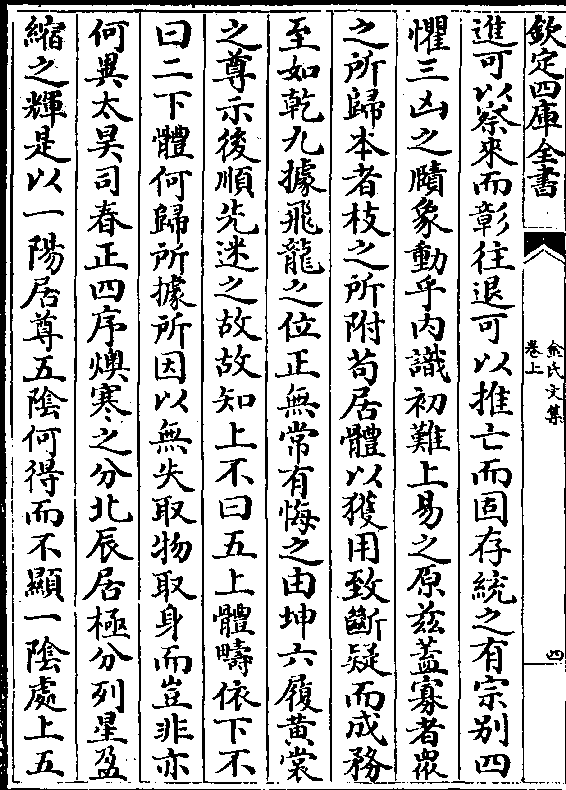 欽定四庫全書
僉氏文集
卷上
四
進可以察來而彰往退可以推亡而固存統之有宗别四
懼三凶之賾象動乎内識初難上易之原兹葢寡者衆
之所歸本者枝之所附茍居體以獲用致斷疑而成務
至如乾九據飛龍之位正無常有悔之由坤六履黄裳
之尊示後順先迷之故故知上不曰五上體疇依下不
曰二下體何歸所據所因以無失取物取身而豈非亦
何異太昊司春正四序燠寒之分北辰居極分列星盈
縮之輝是以一陽居尊五陰何得而不顯一陰處上五